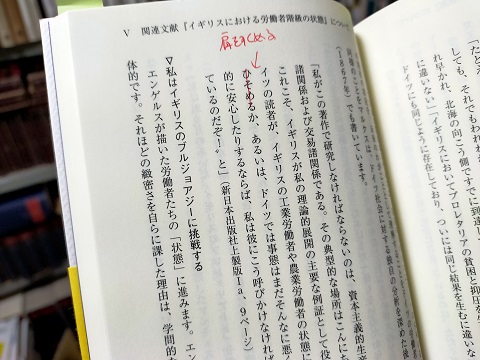 Ⅴ 関連文献『イギリスにおける労働者階級の状態』について
肩をすくめる
ひそめ
ドイツにも同じように存在しており、ついには同じ結果を生むに違いな
に違いない」「イギリスにおいてプロレタリアの貧困と抑圧を
早かれ、北海の向こう側ですでに到達し
しても、それでもわれ
「たとえ
（１８６７年）でも書いています。
「私がこの著作で研究しなければならないのは、資本主義的生
諸関係および交易諸関係である。その典型的な場所はこんに
これこそ、イギリスが私の理論的展開の主要な例証として役
イツの読者が、イギリスの工業労働者や農業労働者の状態に
ひそめるか、あるいは、ドイツでは事態はまだそんなに悪
的に安心したりするならば、私は彼にこう呼びかけなければ
ているのだぞ！″と」（新日本出版社上製版Ⅰａ、９ページ）
∇私はイギリスのブルジョアジーに挑戦する
エンゲルスが描いた労働者たちの「状態」に進みます。エン
体的です。それほどの緻密さを自らに課した理由は、学問的